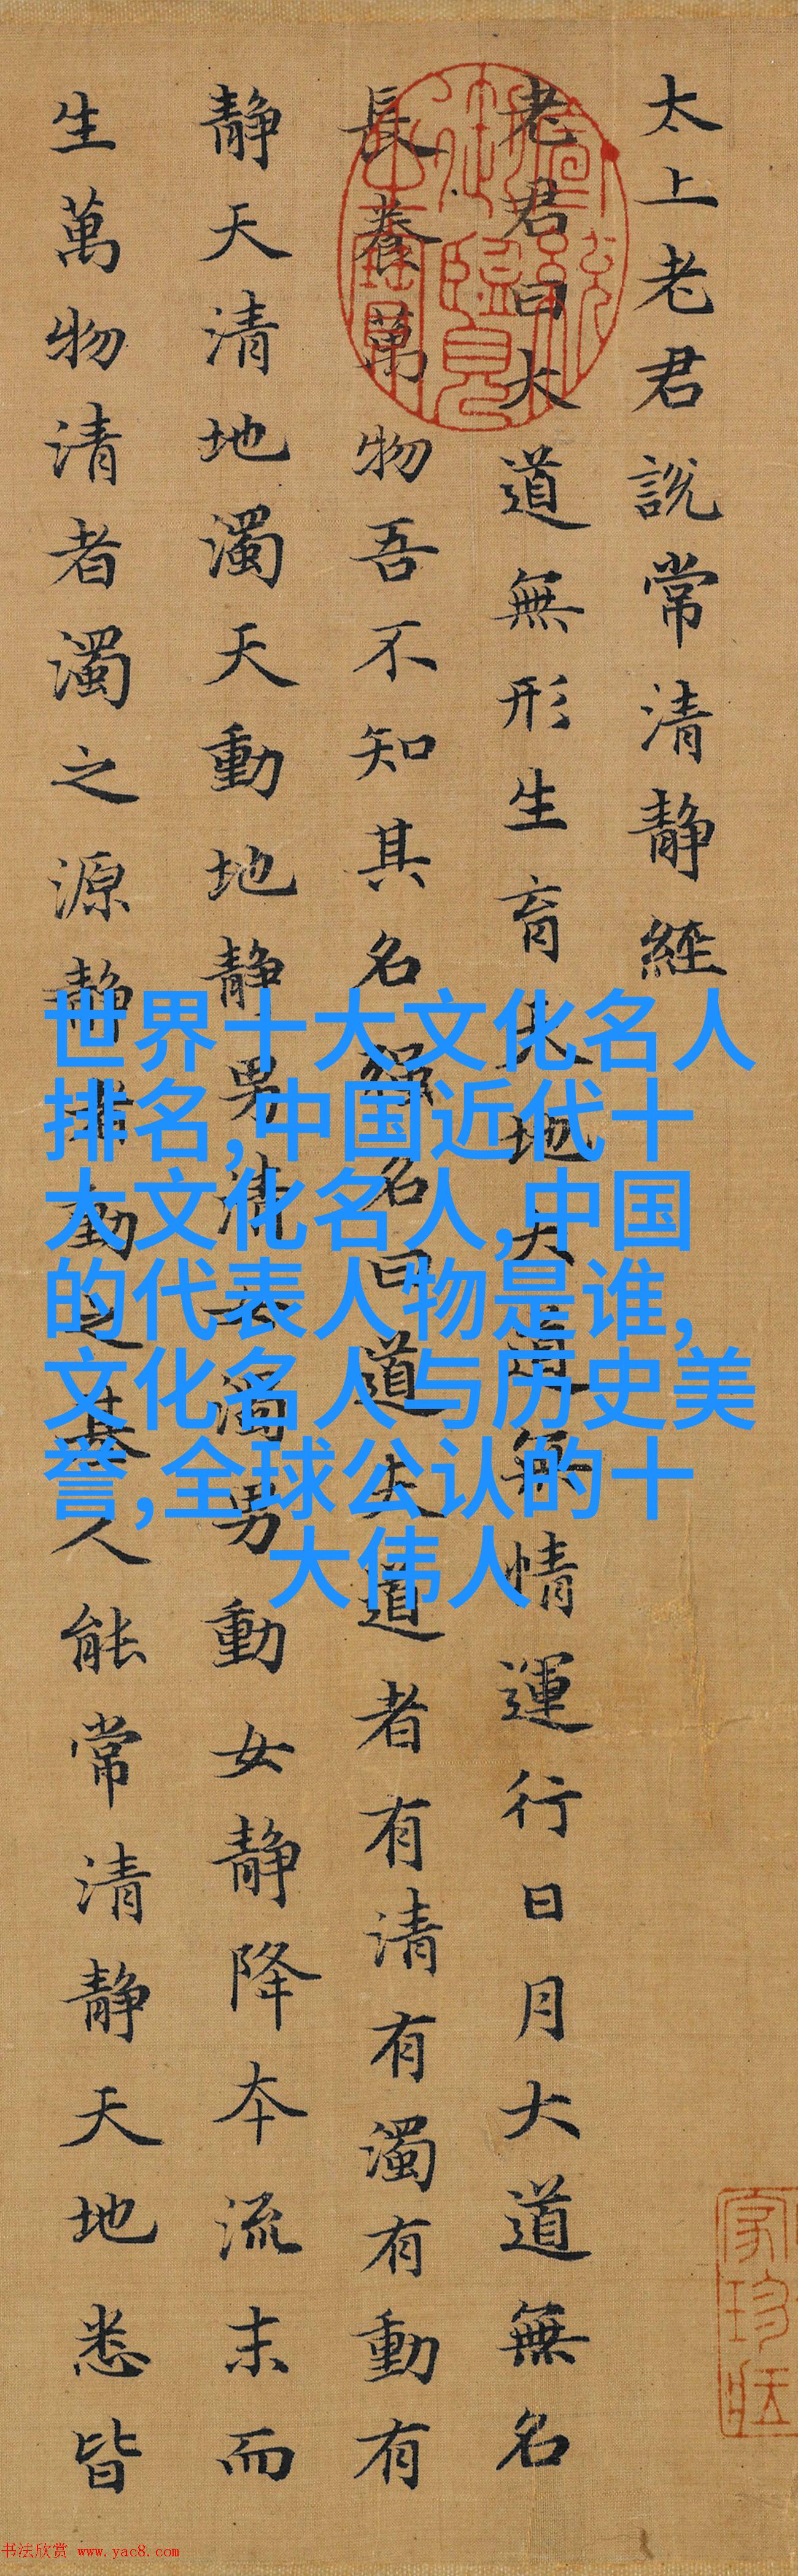 太上老君說常清静經
老君曰大道無形生育天地大道無情運行日月大道無名
長養萬物吾不知其名强名曰道夫道者有清有濁有動有
静天清地濁天動地静男清女濁男動女静降夲流末而
生萬物清者濁之源静者動之基人能常清静天地悉皆
世界十大文化名人
排名,中国近代十
大文化名人,中国
的代表人物是谁,
文化名人与历史美
誉,全球公认的十
大伟人
书法欣赏 www.yac8.com